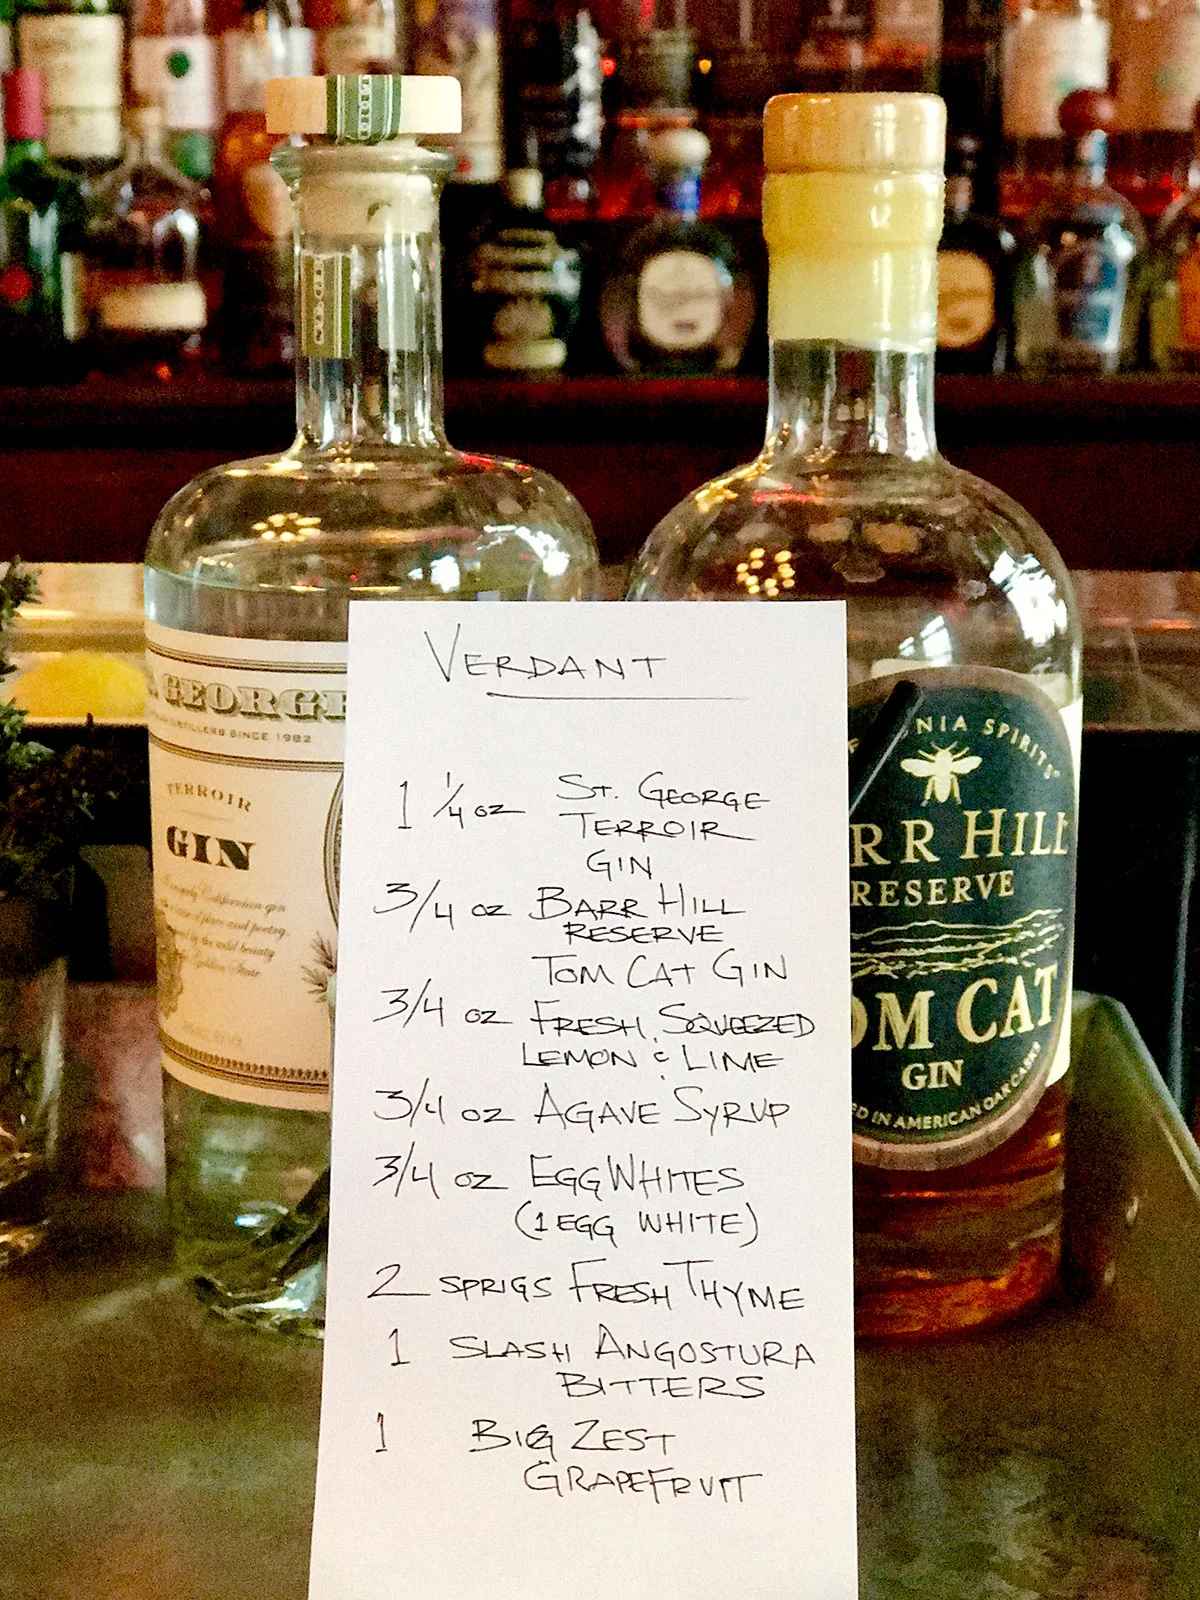 VERDANT
1 1/4 oz ST. GEORGE
TERROIR
GIN
3/4 oz BARR HILL
RESERVE
TOM CAT GIN
3/4 oz FRESH SQUEEZED
LEMON & LIME
3/4 oz AGAVE SYRUP
3/4 oz EGG WHITES
(1 EGG WHITE)
2 SPRIGS FRESH THYME
1 SLASH ANGOSTURA
BITTERS
1 BIG ZEST
GRAPEFRUIT
GEORGE
DISTILLERS SINCE 1982
TERROIR
GIN
Californian gin
place and poetry,
by the wild beauty
Golden State
NIA SPIRITS
RR HILL
RESERVE
OM CAT
GIN
ED IN AMERICAN OAK CASKS